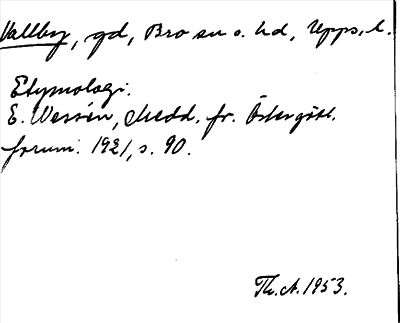 Vallby, gd, Bro sn o. hd, Upps. l.
Etymologi.
E. Wessén, Medd. fr. Östergötl.
fornm. 1921, s. 90.
Th. A. 1953.